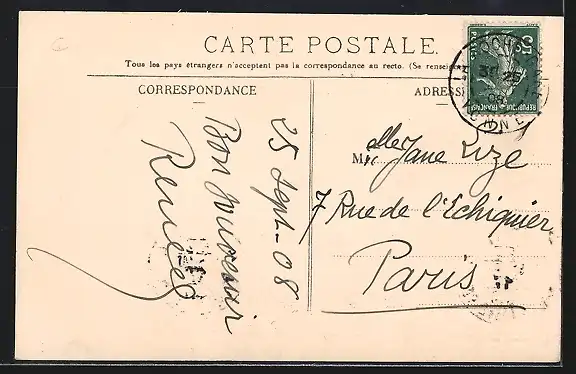 CARTE POSTALE.
Tous les pays étrangers n'acceptent pas la correspondance au recto. (Se renseig
CORRESPONDANCE
ADRESS
25 Sept - 08
Bon souvenir
Renée
Melle Jane Lize
7 Rue de l'Echiquier
Paris
REPUBLIQUE FRANÇAISE
POSTES